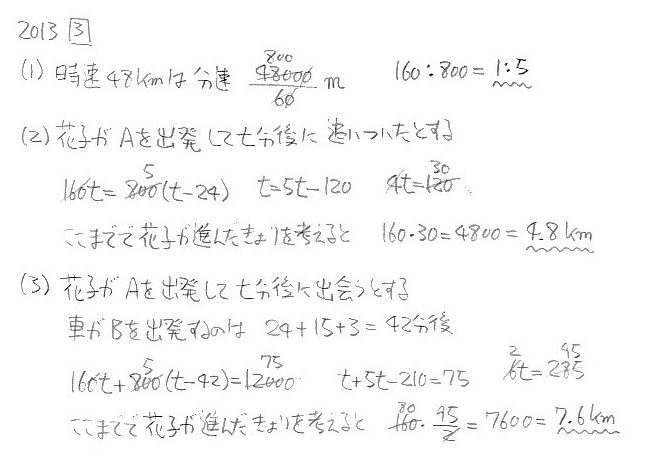 2013 3
(1) 時速48kmは分速 48000/60 800 m 160:800=1:5
(2) 花子がAを出発してt分後に追いついたとする
160t=800(t-24) 5 t=5t-120 4t=120 30
ここまでで花子が進んだきょりを考えると 160・30=4800=4.8km
(3) 花子がAを出発してt分後に出会うとする
車がBを出発するのは 24+15+3=42分後
160t+800(t-42)=12000 5 75 t+5t-210=75 6t=285 2 95
ここまでで花子が進んだきょりを考えると 160・95/2 80 =7600=7.6km